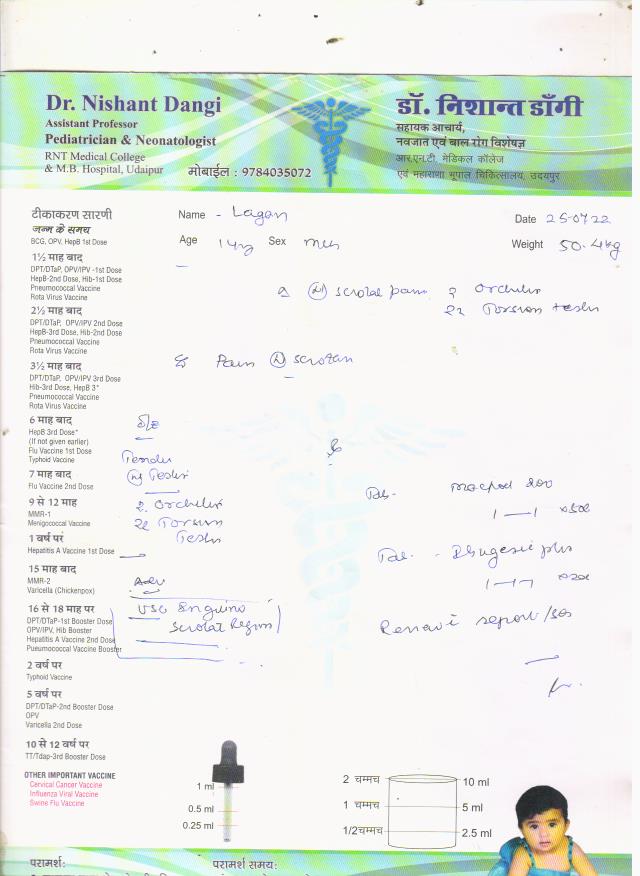 Dr. Nishant Dangi
Assistant Professor
Pediatrician & Neonatologist
RNT Medical College
& M.B. Hospital, Udaipur
मोबाईल : 9784035072
डॉ. निशान्त डाँगी
सहायक आचार्य,
नवजात एवं बाल रोग विशेषज्ञ
आर.एन.टी. मेडिकल कॉलेज
एवं महाराणा भूपाल चिकित्सालय, उदयपुर
Name - Lagan
Date 25-07-22
Age 14y Sex
Weight 50.4kg
scrotal pain
Torsion testis
Pain scrotum
Tender
Testis
Torsion
Testis
USG Inguino
Scrotal Region
Tab.
200
1 — 1
Tab. -
plus
1 — 1
Review report/SOS
टीकाकरण सारणी
जन्म के समय
BCG, OPV, HepB 1st Dose
1½ माह बाद
DPT/DTaP, OPV/IPV -1st Dose
HepB-2nd Dose, Hib-1st Dose
Pneumococcal Vaccine
Rota Virus Vaccine
2½ माह बाद
DPT/DTaP, OPV/IPV 2nd Dose
HepB-3rd Dose, Hib-2nd Dose
Pneumococcal Vaccine
Rota Virus Vaccine
3½ माह बाद
DPT/DTaP, OPV/IPV 3rd Dose
Hib-3rd Dose, HepB 3*
Pneumococcal Vaccine
Rota Virus Vaccine
6 माह बाद
HepB 3rd Dose*
(If not given earlier)
Flu Vaccine 1st Dose
Typhoid Vaccine
7 माह बाद
Flu Vaccine 2nd Dose
9 से 12 माह
MMR-1
Menigococcal Vaccine
1 वर्ष पर
Hepatitis A Vaccine 1st Dose
15 माह बाद
MMR-2
Varicella (Chickenpox)
16 से 18 माह पर
DPT/DTaP-1st Booster Dose
OPV/IPV, Hib Booster
Hepatitis A Vaccine 2nd Dose
Pueumococcal Vaccine Booster
2 वर्ष पर
Typhoid Vaccine
5 वर्ष पर
DPT/DTaP-2nd Booster Dose
OPV
Varicella 2nd Dose
10 से 12 वर्ष पर
TT/Tdap-3rd Booster Dose
OTHER IMPORTANT VACCINE
Cervical Cancer Vaccine
Influenza Viral Vaccine
Swine Flu Vaccine
1 ml
0.5 ml
0.25 ml
2 चम्मच 10 ml
1 चम्मच 5 ml
1/2चम्मच 2.5 ml
परामर्श: परामर्श समय: